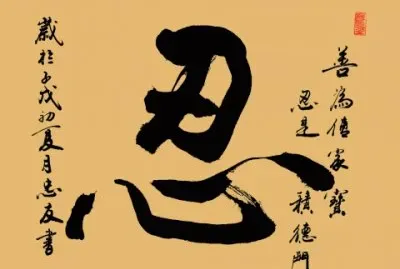 善為傳家寶
忍是積德門
忍
歲於子戊初夏月忠友書